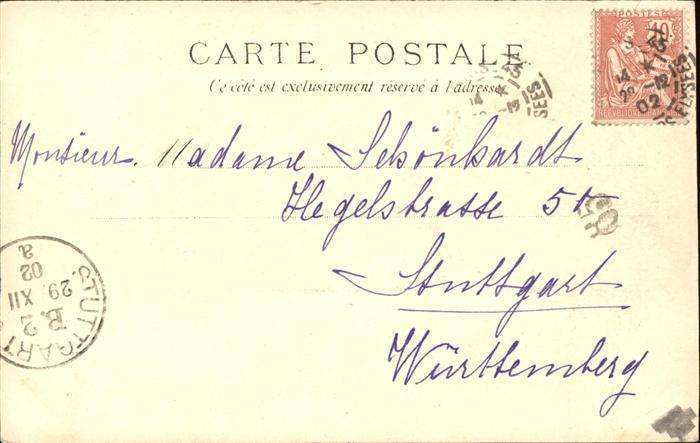 CARTE POSTALE
Ce côté est exclusivement réservé à l'adresse
POSTES
10
Monsieur. Madame Schönhardt
Hegelstrasse 5
Stuttgart
Württemberg
STUTTGART
B.2
29 XII
02
a